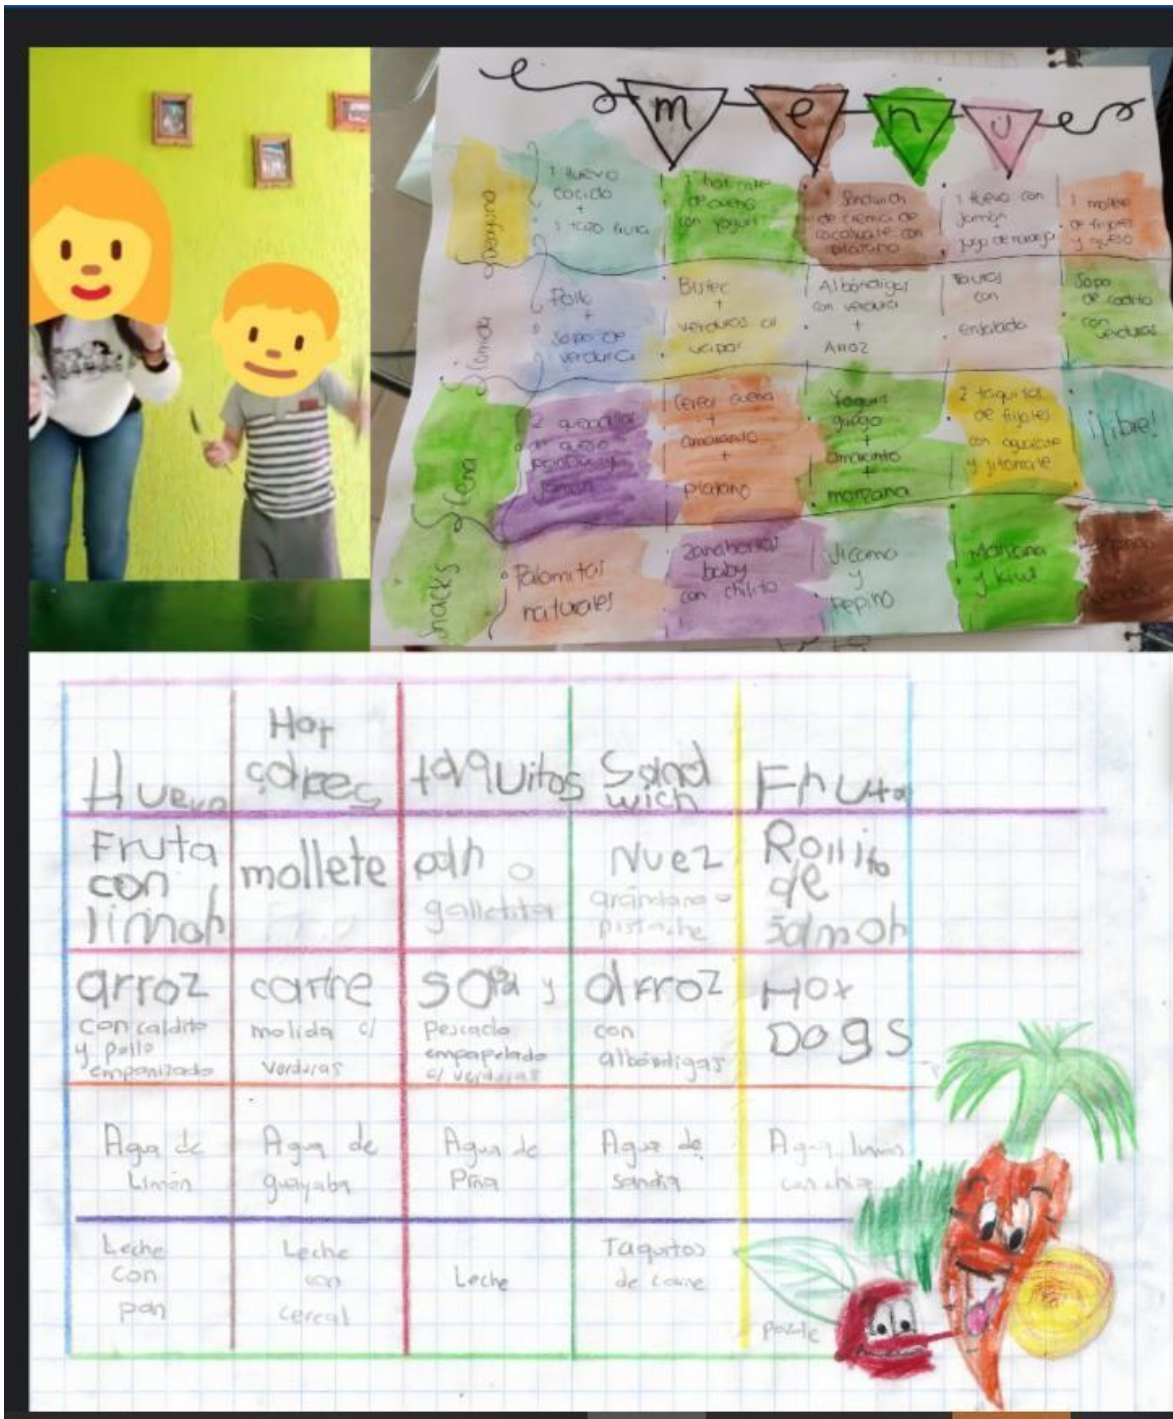 menú
Desayuno
1 Huevo
cocido
+
1 taza fruta
1 hot cake
de avena
con yogurt
1 Sandwich
de crema de
cacahuate con
platano
1 Huevo con
jamón
jugo de naranja
1 mollete
de frijoles
y queso
Comida
Pollo
+
sopa de
verdura
Bistec
+
verduras al
vapor
Albóndigas
con verdura
+
Arroz
con
Ensalada
Sopa
de caldito
con
verduras
Cena
2 quesadillas
de queso
jamón
Cereal avena
+
amaranto
+
platano
Yogurt
griego
+
amaranto
+
manzana
2 taquitos
de frijoles
con aguacate
y jitomate
¡libre!
Snacks
Palomitas
naturales
Zanahorias
baby
con chilito
Jicama
y
Pepino
Manzana
y kiwi
Huevo
Hot
cakes
taquitos
Sand
wich
Fruta
Fruta
con
limon
mollete
pan o
galletita
Nuez
arándano o
pistache
Rollito
de
jamon
arroz
con caldito
y pollo
empanizado
carne
molida c/
verduras
sopa y
pescado
empapelado
c/ verduras
arroz
con
albóndigas
Hox
DOGS
Agua de
Limón
Agua de
guayaba
Agua de
Piña
Agua de
sandia
Agua limon
con chia
Leche
con
pan
Leche
con
cereal
Leche
Taquitos
de carne
pozole